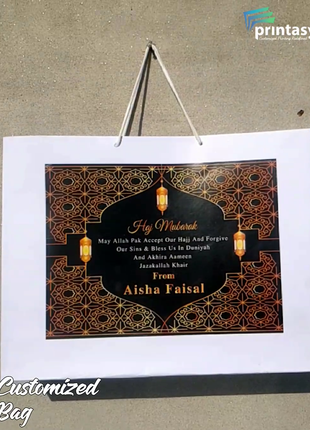 printasy
Haj Mubarak
May Allah Pak Accept Our Hajj And Forgive
Our Sins & Bless Us In Duniyah
And Akhira Aameen
Jazakallah Khair
From
Aisha Faisal
Customized
Bag